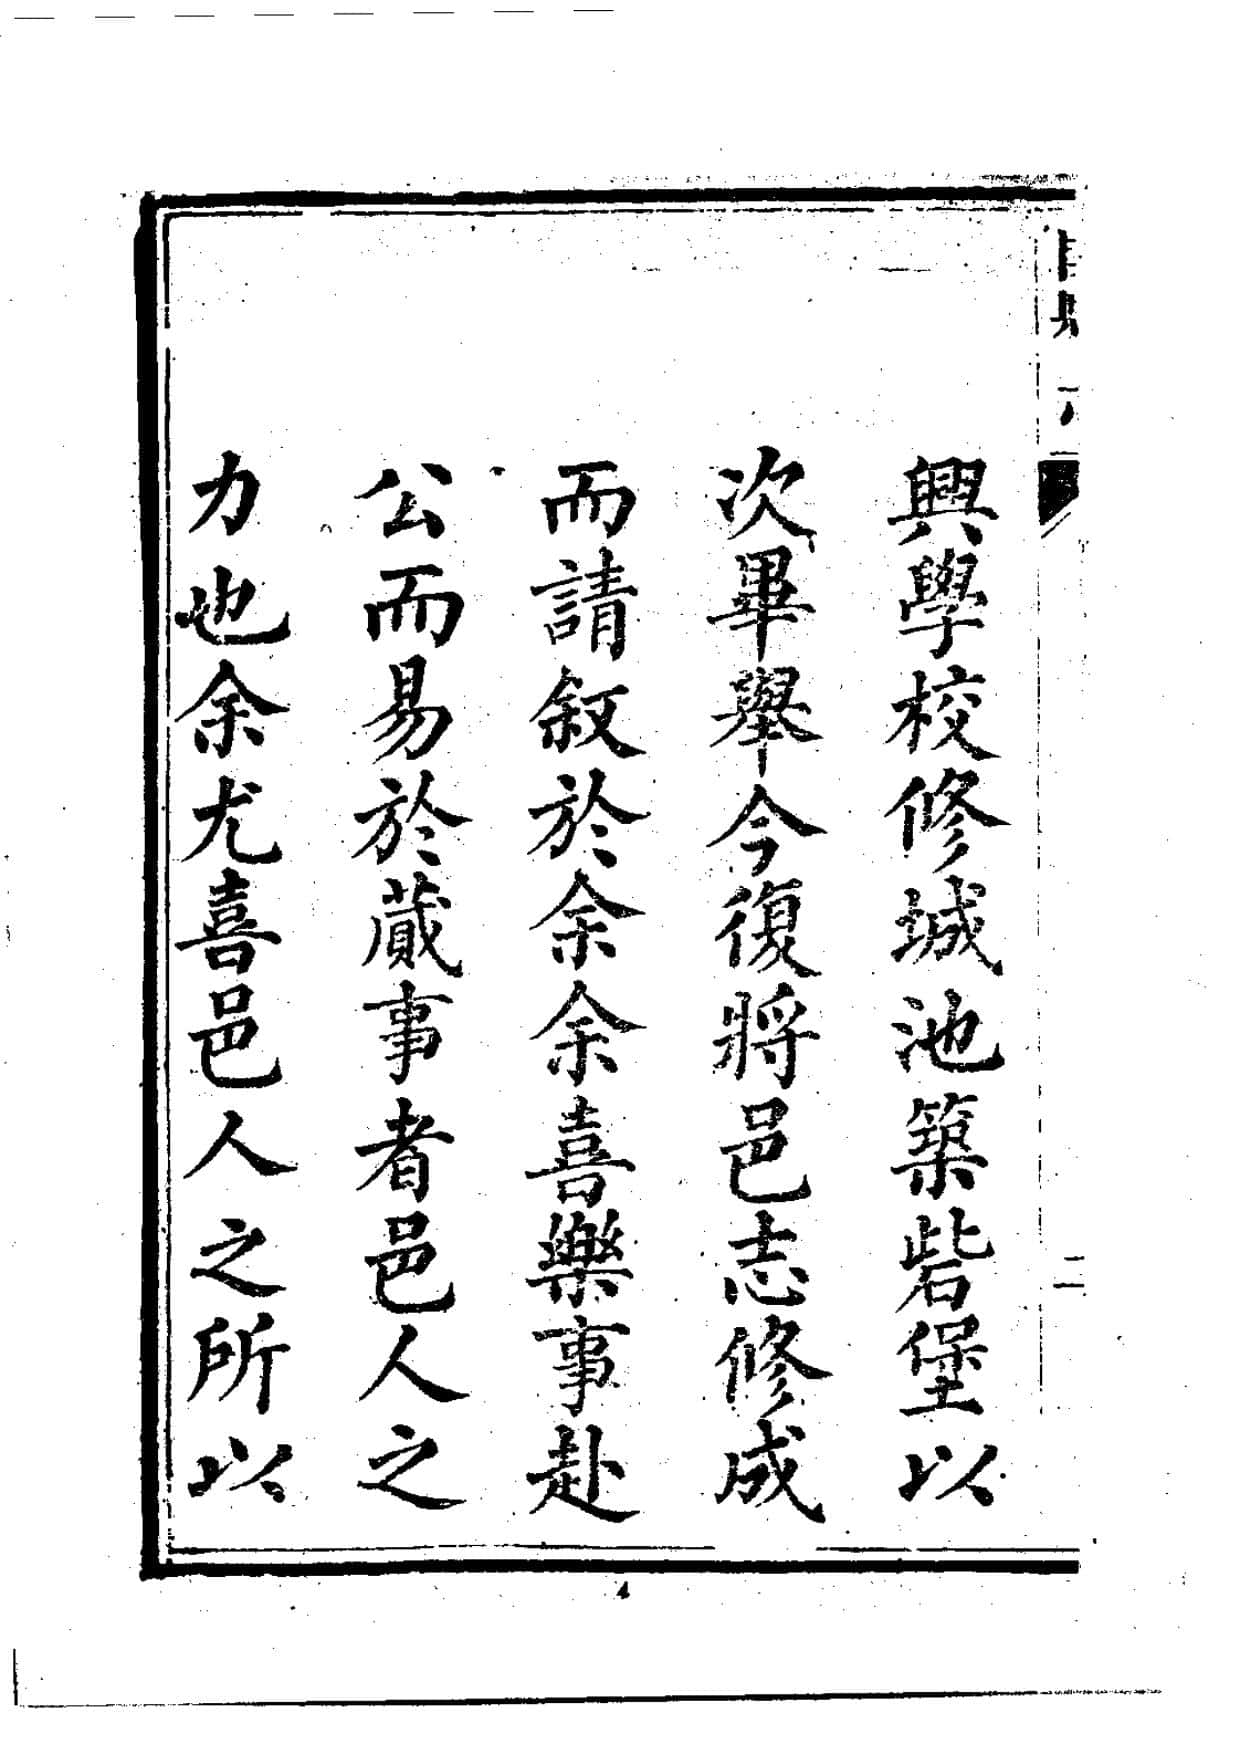 興學校修城池築砦堡以
次畢舉今復將邑志修成
而請敍於余余喜樂事赴
公而易於蕆事者邑人之
力也余尤喜邑人之所以
二
4